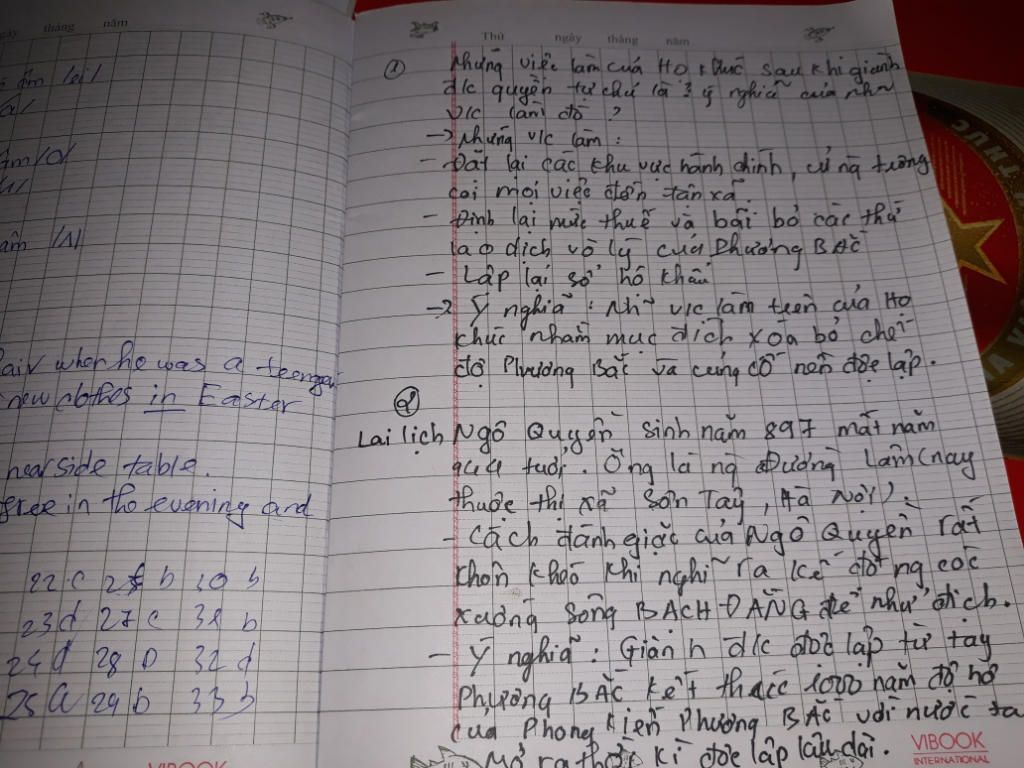 ngày tháng năm
Thứ ngày tháng năm
new clothes in Easter
near side table.
free in the evening and
22 c 28 b 30 b
23 d 27 c 31 b
24 d 28 D 32 d
25 a 29 b 33 b
VIBOOK
① Những việc làm của Họ Khúc sau khi giành
đ/c quyền tự chủ là ? ý nghĩa của nhn
v/c làm đó ?
→ Những v/c làm :
- Đặt lại các khu vực hành chính, cử ng tường
coi mọi việc đến tận xã.
- Định lại mức thuế và bãi bỏ các thứ
lao dịch vô lý của Phương BẮC
- Lập lại sổ hộ khẩu
→ Ý nghĩa : Nhg v/c làm trên của Họ
Khúc nhằm mục đích xóa bỏ chế
độ Phương Bắc và củng cố nền độc lập.
②
Lai lịch Ngô Quyền sinh năm 897 mất năm
944 tuổi. Ông là ng Đường Lâm (nay
thuộc thị xã Sơn Tây, Hà Nội).
- Cách đánh giặc của Ngô Quyền rất
khôn khéo khi nghĩ ra kế đóng cọc
xuống sông BẠCH ĐẰNG để nhử địch.
- Ý nghĩa : Giành đ/c độc lập từ tay
Phương BẮC kết thúc 1000 năm đô hộ
của Phong Kiến Phương BẮC với nước ta
Mở ra thời kì độc lập lâu dài.
VIBOOK
INTERNATIONAL